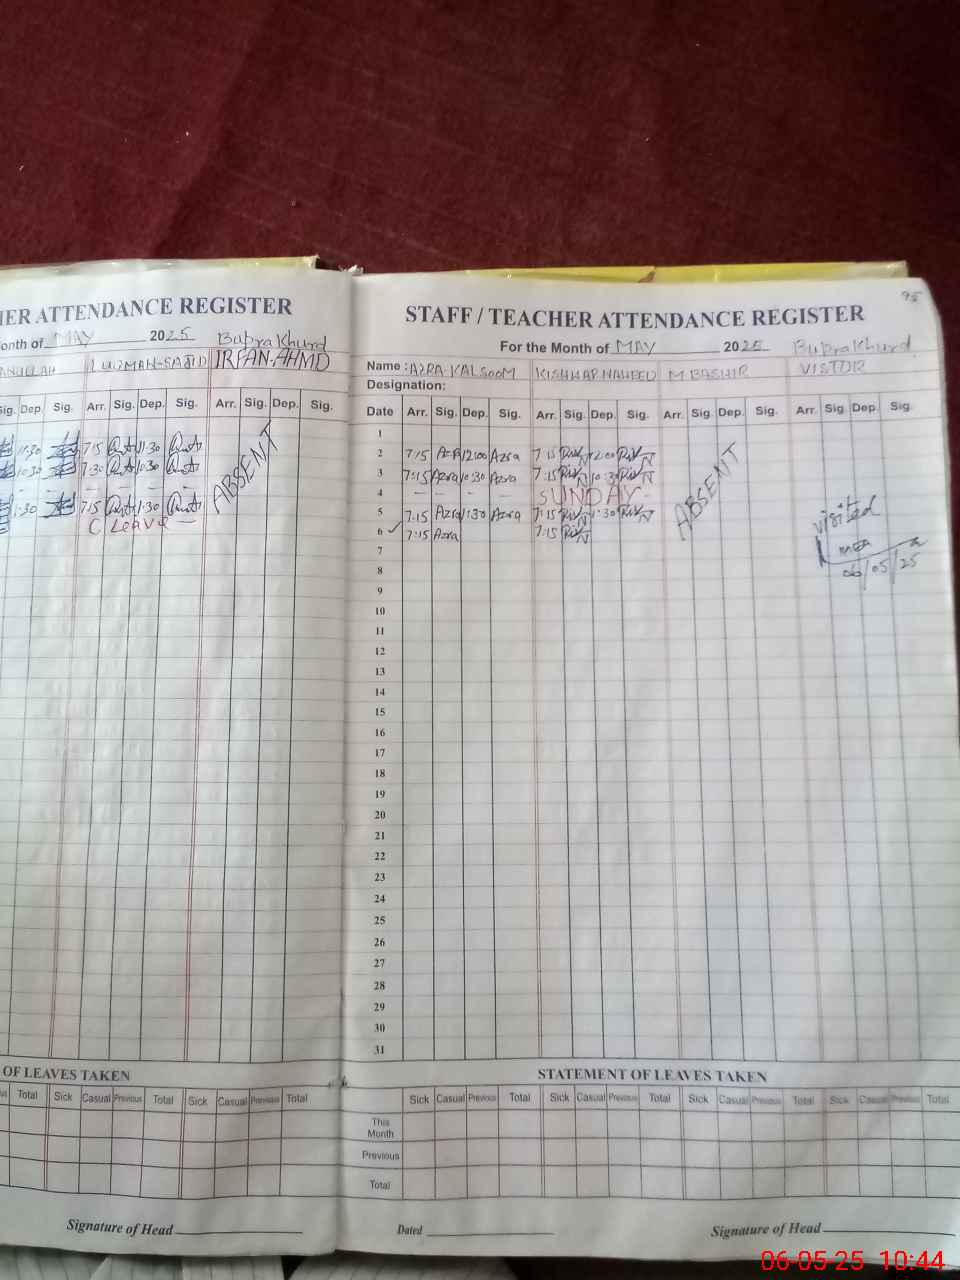 HER ATTENDANCE REGISTER
onth of MAY 2025 Bupra Khurd
ANULLAH LUQMAN-SAJID IRFAN.AHMD
Sig. Dep. Sig. Arr. Sig. Dep. Sig. Arr. Sig. Dep. Sig.
11:30 7:15 11:30
10:30 7:30 10:30
- - - - - -
1:30 7:15 1:30
C Leave -
ABSENT
OF LEAVES TAKEN
Total Sick Casual Previous Total Sick Casual Previous Total
Signature of Head
95
STAFF / TEACHER ATTENDANCE REGISTER
For the Month of MAY 2025 Bupra Khurd
Name : AZRA-KALSOOM KISHWAR NAHEED M BASHIR VISTOR
Designation:
Date Arr. Sig. Dep. Sig. Arr. Sig. Dep. Sig. Arr. Sig. Dep. Sig. Arr. Sig. Dep. Sig.
1
2 7:15 Azra 12:00 Azra 7:15 12:00
3 7:15 Azra 10:30 Azra 7:15 10:30
4 - - - - SUNDAY -
5 7:15 Azra 1:30 Azra 7:15 1:30
6 7:15 Azra 7:15
ABSENT
visited
06/05/25
7
8
9
10
11
12
13
14
15
16
17
18
19
20
21
22
23
24
25
26
27
28
29
30
31
STATEMENT OF LEAVES TAKEN
Sick Casual Previous Total Sick Casual Previous Total Sick Casual Previous Total Sick Casual Previous Total
This
Month
Previous
Total
Dated Signature of Head
06-05-25 10:44